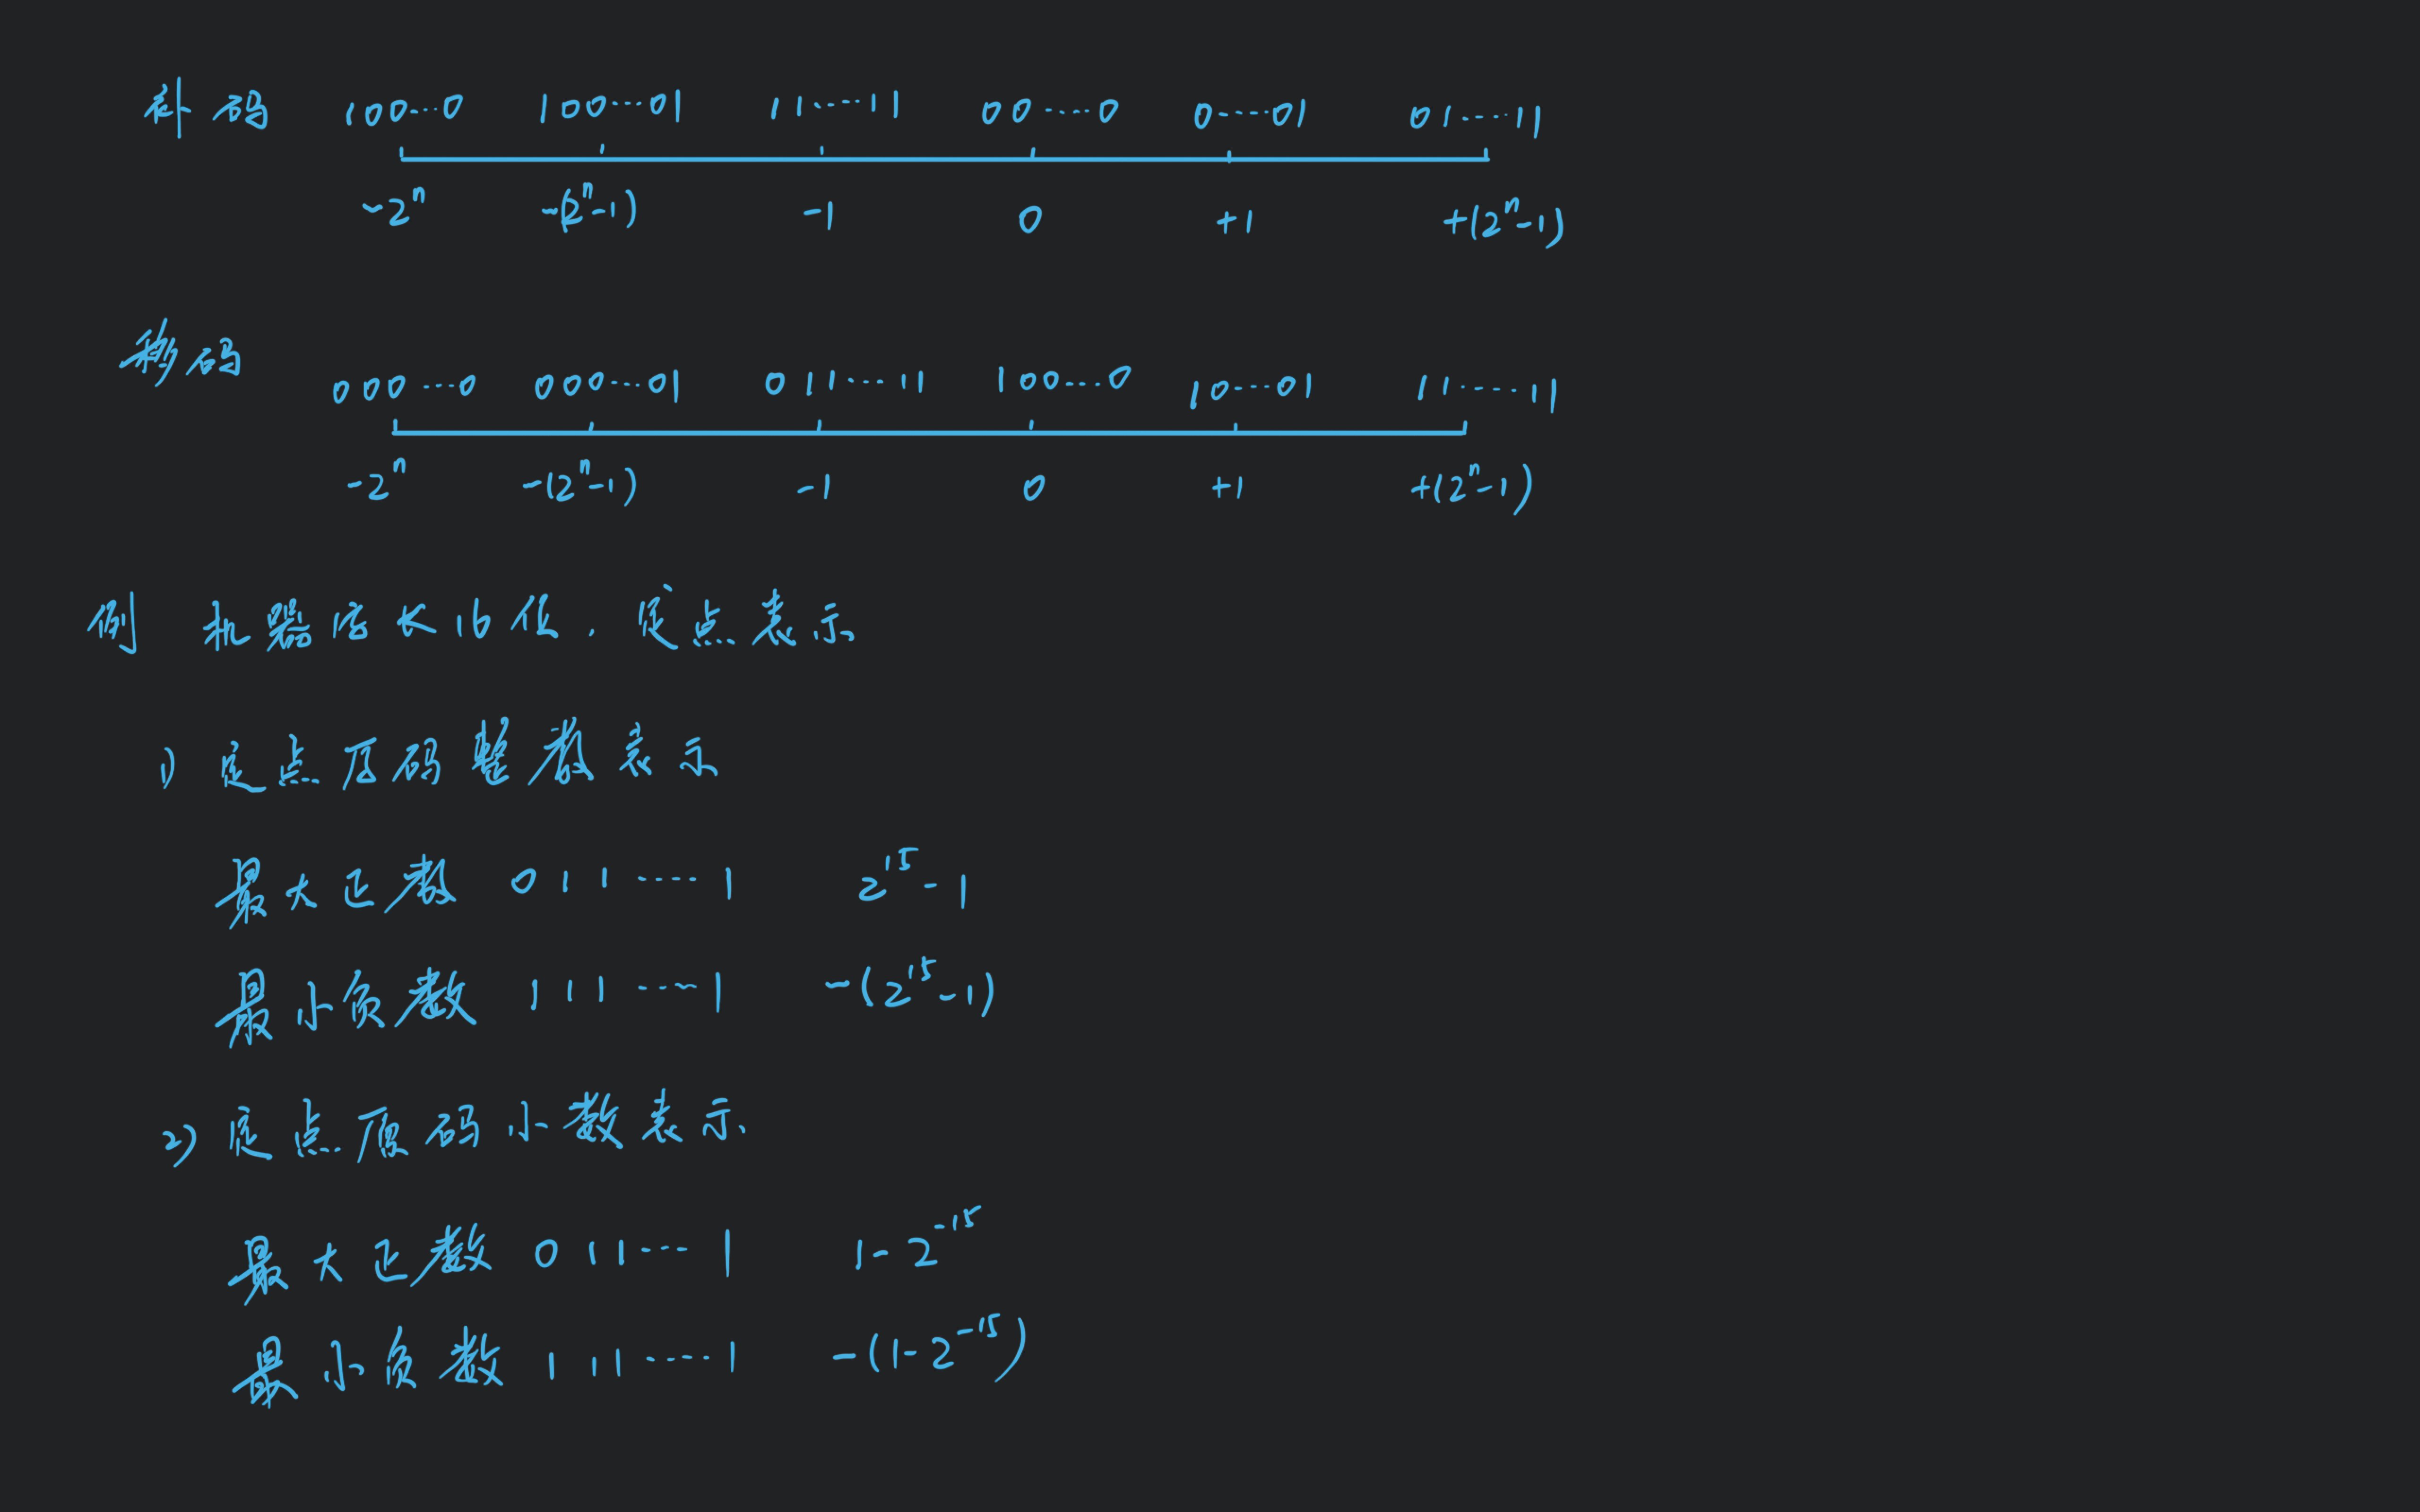 补码 100...0 100...01 11...11 00...0 0...01 01...11
-2ⁿ -(2ⁿ-1) -1 0 +1 +(2ⁿ-1)
移码 000...0 000...01 011...11 100...0 10...01 11...11
-2ⁿ -(2ⁿ-1) -1 0 +1 +(2ⁿ-1)
例 机器字长16位,定点表示
1) 定点原码整数表示
最大正数 011...1 2¹⁵-1
最小负数 111...1 -(2¹⁵-1)
2) 定点原码小数表示.
最大正数 011...1 1-2⁻¹⁵
最小负数 111...1 -(1-2⁻¹⁵)